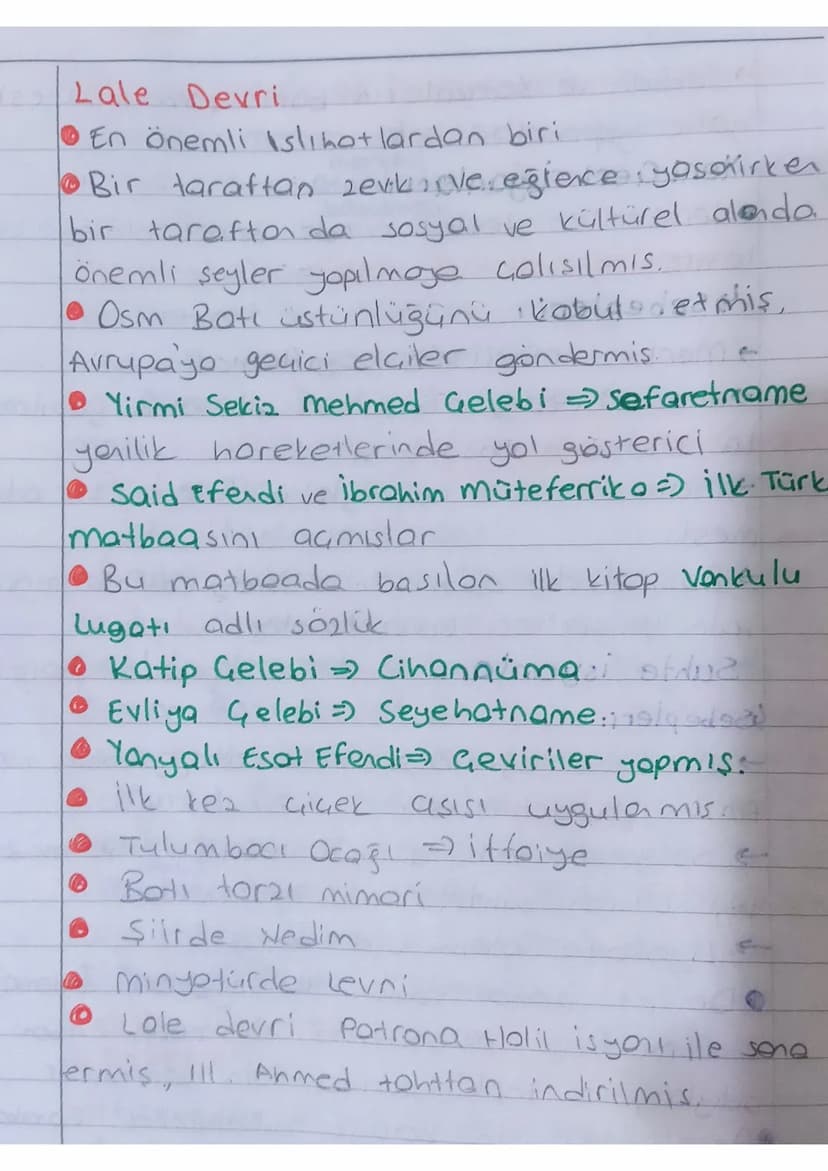 Lale Devri
En önemli Islıhatlardan biri
Bir taraftan zevk ve eğlence yaşanırken
bir taraftan da sosyal ve kültürel alanda
önemli seyler yapılmaya çalısılmıs.
Osm Batı üstünlüğünü kabul etmiş,
Avrupa'ya geçici elçiler göndermis
Yirmi Sekiz Mehmed Çelebi => Sefaretname
yenilik hareketlerinde yol gösterici
Said Efendi ve İbrahim müteferrika => İlk Türk
matbaasını açmıslar
Bu matbaada basılan ilk kitap Vankulu
Lugatı adlı sözlük
Katip Çelebi => Cihannüma
Evliya Çelebi => Seyehatname
Yanyalı Esat Efendi => Çeviriler yapmıs.
İlk kez çiçek asısı uygulanmıs
Tulumbacı Ocağı => itfaiye
Batı tarzı mimari
Şiirde Nedim
Minyatürde Levni
Lale devri Patrona Halil isyanı ile sona
ermis, III. Ahmed tahttan indirilmis.